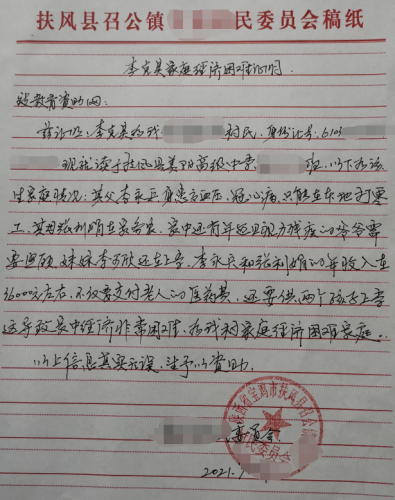 扶风县召公镇 民委员会稿纸
李克昊家庭经济困难证明
教育资助网:
兹证明:李克昊为我 村村民,身份证号:6103
现就读于扶风县美阳高级中学 班,以下为该
生家庭情况:其父李永兵身患高血压,冠心病,只能在本地打零
工,其母张利娟在家务农,家中还有年迈且视力残疾的爷爷需
要照顾,妹妹李 欣还在上学,李永兵和张利娟的年收入在
36000元左右,不仅要交付老人的医药费,还要供两个孩子上学
这导致家中经济非常困难,为我村家庭经济困难家庭。
以上信息真实无误,望予以资助。
委员会
陕西省宝鸡市扶风县召公镇
民委员会
2021.